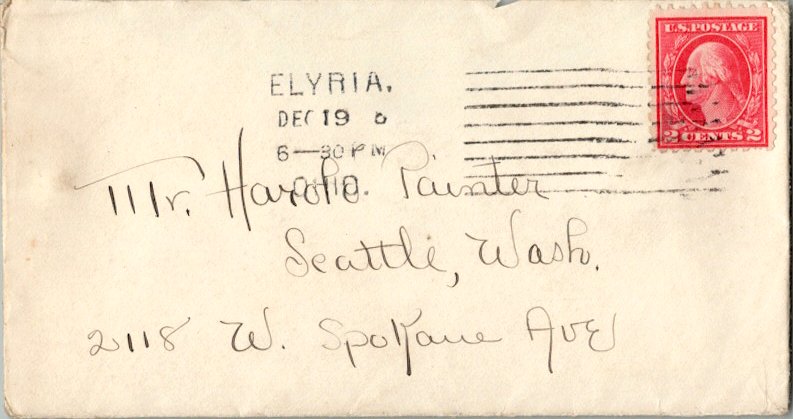 U.S. POSTAGE
2 CENTS 2
ELYRIA.
DEC 19
6—30 PM
OHIO.
Mr. Harold Painter
Seattle, Wash.
2118 W. Spokane Ave